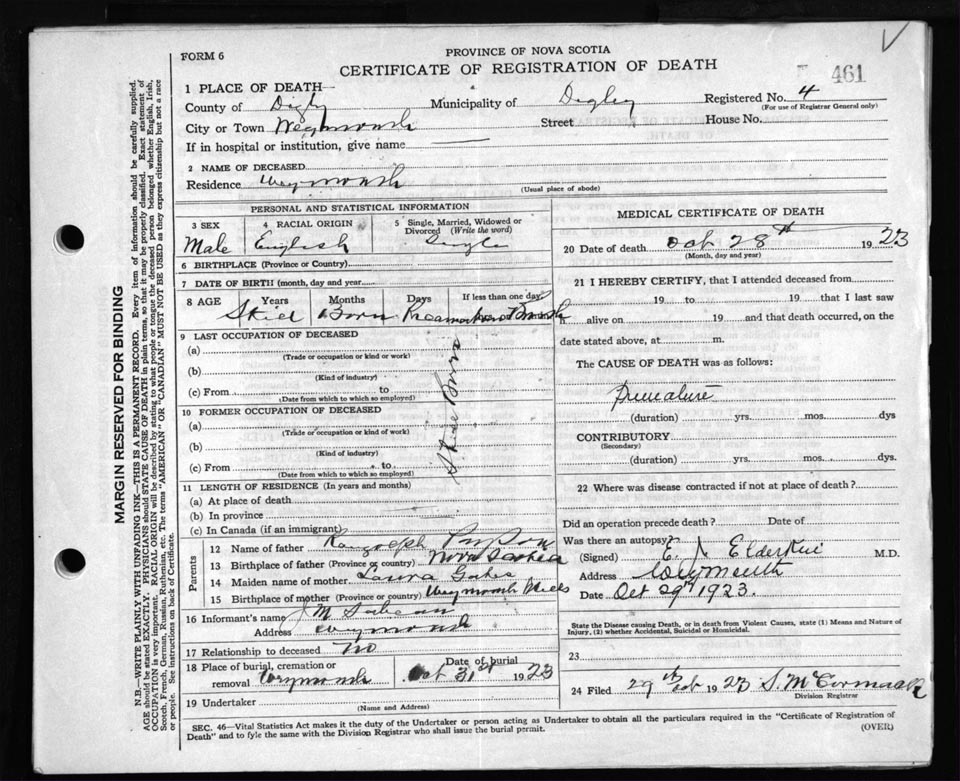 FORM 6
PROVINCE OF NOVA SCOTIA
CERTIFICATE OF REGISTRATION OF DEATH
461
1 PLACE OF DEATH
County of Digby Municipality of Digby Registered No. 4
(For use of Registrar General only)
City or Town Weymouth Street House No.
If in hospital or institution, give name
2 NAME OF DECEASED
Residence Weymouth
(Usual place of abode)
PERSONAL AND STATISTICAL INFORMATION
3 SEX 4 RACIAL ORIGIN 5 Single, Married, Widowed or Divorced (Write the word)
Male English Single
6 BIRTHPLACE (Province or Country)
7 DATE OF BIRTH (month, day and year)
8 AGE Years Months Days If less than one day
Still Born
9 LAST OCCUPATION OF DECEASED
(a)
(Trade or occupation or kind or work)
(b)
(Kind of industry)
(c) From to
(Date from which to which so employed)
Still Born
10 FORMER OCCUPATION OF DECEASED
(a)
(Trade or occupation or kind of work)
(b)
(Kind of industry)
(c) From to
(Date from which to which so employed)
11 LENGTH OF RESIDENCE (In years and months)
(a) At place of death
(b) In province
(c) In Canada (if an immigrant)
Parents
12 Name of father Randolph
13 Birthplace of father (Province or country) Nova Scotia
14 Maiden name of mother Laura
15 Birthplace of mother (Province or country) Weymouth Mills
16 Informant's name J M Sabean
Address Weymouth
17 Relationship to deceased no
18 Place of burial, cremation or removal Weymouth Date of burial Oct 31st 1923
19 Undertaker
(Name and Address)
MEDICAL CERTIFICATE OF DEATH
20 Date of death Oct 28th 1923
(Month, day and year)
21 I HEREBY CERTIFY, that I attended deceased from
19 to 19 that I last saw
h alive on 19 and that death occurred, on the
date stated above, at m.
The CAUSE OF DEATH was as follows:
Premature
(duration) yrs. mos. dys
CONTRIBUTORY
(Secondary)
(duration) yrs. mos. dys.
22 Where was disease contracted if not at place of death?
Did an operation precede death? Date of
Was there an autopsy?
(Signed) E. Elderkin M.D.
Address Weymouth
Date Oct 29th 1923.
State the Disease causing Death, or in death from Violent Causes, state (1) Means and Nature of
Injury, (2) whether Accidental, Suicidal or Homicidal.
23
24 Filed 29th Oct 1923 S. McCormack
Division Registrar
SEC. 46—Vital Statistics Act makes it the duty of the Undertaker or person acting as Undertaker to obtain all the particulars required in the "Certificate of Registration of
Death" and to fyle the same with the Division Registrar who shall issue the burial permit.
(OVER)
MARGIN RESERVED FOR BINDING
N.B.—WRITE PLAINLY WITH UNFADING INK—THIS IS A PERMANENT RECORD. Every item of information should be carefully supplied.
AGE should be stated EXACTLY. PHYSICIANS should STATE CAUSE OF DEATH in plain terms, so that it may be properly classified. Exact statement of
OCCUPATION is very important. RACIAL ORIGIN will be described by stating to what people or tongue the deceased person belonged whether English, Irish,
Scotch, French, German, Russian, Ruthenian, etc. The terms "AMERICAN" OR "CANADIAN" MUST NOT BE USED as they express citizenship but not a race
or people. See instructions on back of Certificate.